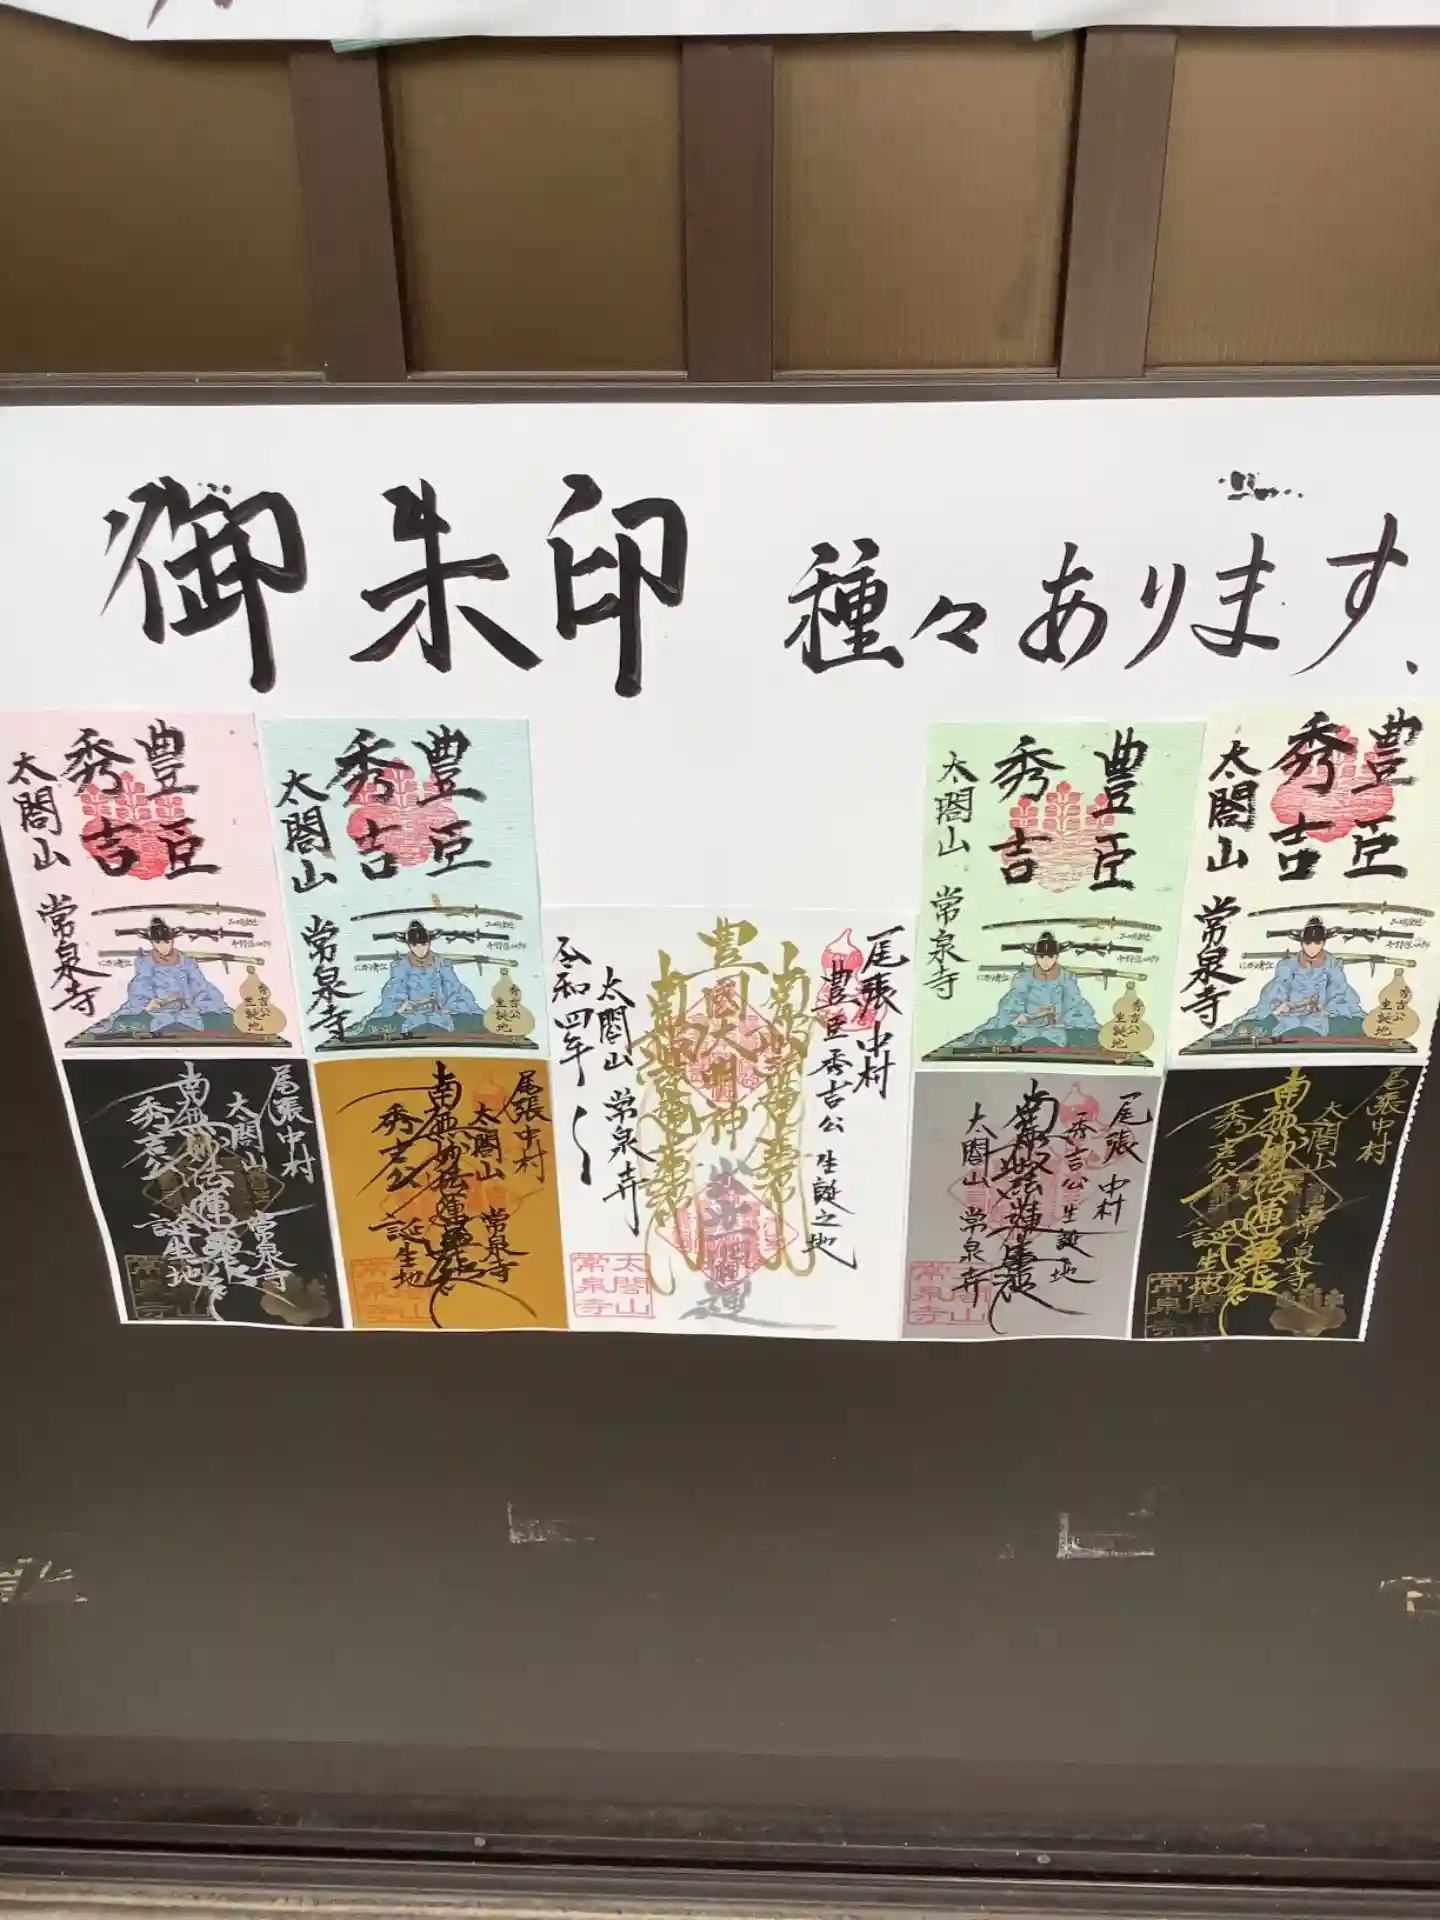 御朱印 種々あります、
豊臣
秀吉
太閤山 常泉寺
秀吉公
生誕地
豊臣
秀吉
太閤山 常泉寺
秀吉公
生誕地
豊臣
秀吉
太閤山 常泉寺
秀吉公
生誕地
豊臣
秀吉
太閤山 常泉寺
秀吉公
生誕地
尾張中村
太閤山 常泉寺
南無妙法蓮華経
秀吉公 誕生地
太閤山
常泉寺
尾張中村
太閤山 常泉寺
南無妙法蓮華経
秀吉公 誕生地
太閤山
常泉寺
尾張中村
豊臣秀吉公生誕之地
豊國大明神
太閤山 常泉寺
令和四年
太閤山
常泉寺
尾張 中村
秀吉公 生誕地
南無妙法蓮華経
太閤山 常泉寺
太閤山
常泉寺
尾張中村
太閤山 常泉寺
南無妙法蓮華経
秀吉公 誕生地
太閤山
常泉寺